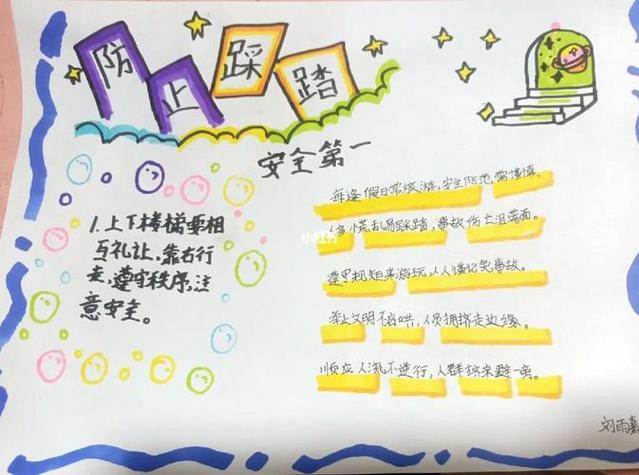 防止踩踏
安全第一
1.上下楼梯要相
互礼让,靠右行
走,遵守秩序,注
意安全。
每逢假日常旅游,安全防范需谨慎。
人多慌乱易踩踏,事故伤亡泪满面。
遵里规矩来游玩,人人谨记
举止文明不起哄,人员拥挤走边缘。
顺应人流不逆行,人群挤来避一旁。
小红书
刘雨嘉